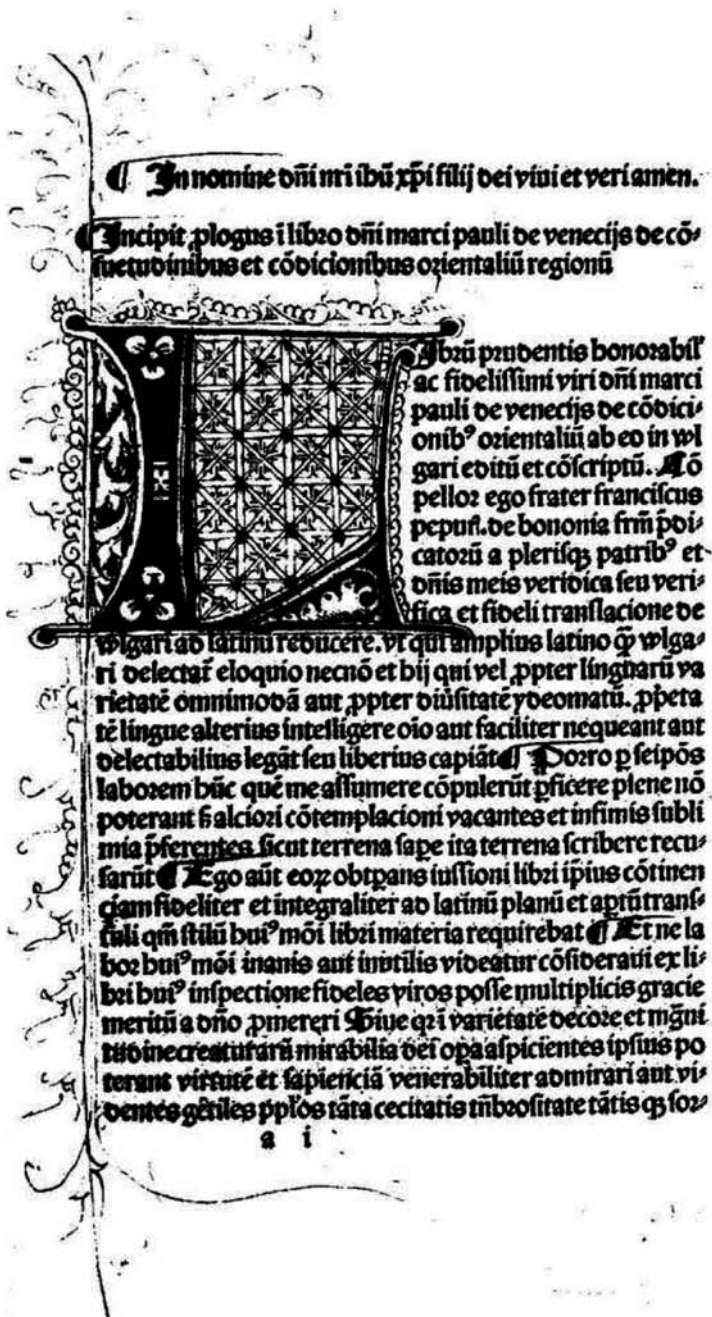 In nomine dñi nri ihũ xp̃i filij dei viui et veri amen.
Incipit ꝓlogus ĩ libro dñi marci pauli de venecijs de cõ-
suetudinibus et cõdicionibus orientaliũ regionũ
Librũ prudentis honorabil̕
ac fidelissimi viri dñi marci
pauli de venecijs de cõdici-
onibꝰ orientaliũ ab eo in wl
gari editũ et cõscriptũ. Cõ
pellor ego frater franciscus
pepuř. de bononia frm̃ p̃di-
catorũ a plerisqꝫ patribꝰ et
dñis meis veridica seu veri-
fica et fideli translacione de
wlgari ad latinũ reducere. vt qui amplius latino q̃ꝫ wlga-
ri delectãt eloquio necnõ et hij qui vel ꝓpter linguarũ va
rietatẽ omnimodã aut ꝓpter diũsitatẽ ydeomatũ. ꝓp̃eta
tẽ lingue alterius intelligere oĩo aut faciliter nequeant aut
delectabilius legãt seu liberius capiãt Porro ꝑ seip̃os
laborem hũc quẽ me assumere cõpulerũt ꝑficere plene nõ
poterant sꝫ alciori cõtemplacioni vacantes et infimis subli
mia p̃ferentes. sicut terrena sape ita terrena scribere recu-
sarũt Ego aũt eoꝝ obtꝑans iussioni libri ip̃ius cõtinen
ciam fideliter et integraliter ad latinũ planũ et aptũ trans-
tuli qm̃ stilũ huiꝰ mõi libri materia requirebat Et ne la
bor huiꝰ mõi inanis aut inutilis videatur cõsideraui ex li-
bri huiꝰ inspectione fideles viros posse multiplicis gracie
meritũ a dño ꝓmereri Siue qꝛ ĩ varietate decore et mg̃ni
tudine creaturarũ mirabilia dei oꝑa aspicientes ipsius po
terant virtutẽ et sapienciã venerabiliter admirari aut vi-
dentes gẽtiles p̃pl̃os tãta cecitatis tñbrositate tãtis qꝫ sor-
a i